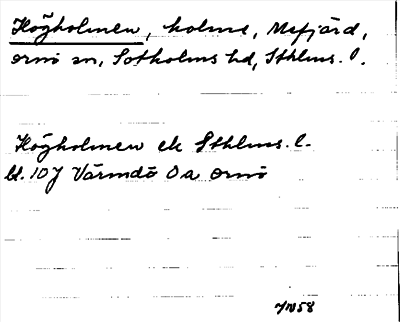 Högholmen, holme, Mefjärd,
Ornö sn, Sotholms hd, Sthlms. l.
Högholmen ek Sthlms. l.
bl. 10J Värmdö Oa Ornö
JN58